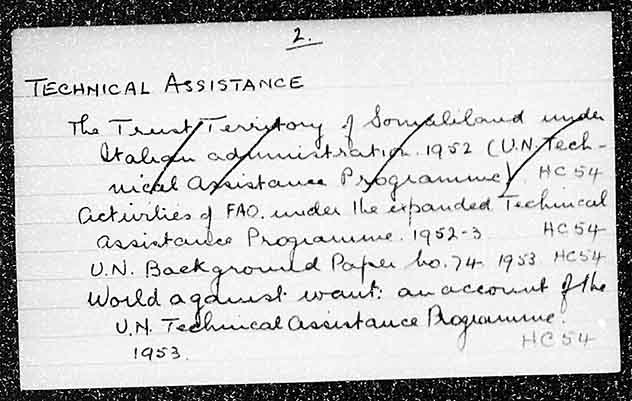 2.
TECHNICAL ASSISTANCE
The Trust Territory of Somaliland under
Italian administration. 1952 (U.N. Tech-
nical Assistance Programme). HC 54
Activities of FAO. under the expanded Technical
Assistance Programme. 1952-3 HC 54
U.N. Background Paper no. 74. 1953 HC 54
World against want: an account of the
U.N. Technical Assistance Programme.
1953. HC 54